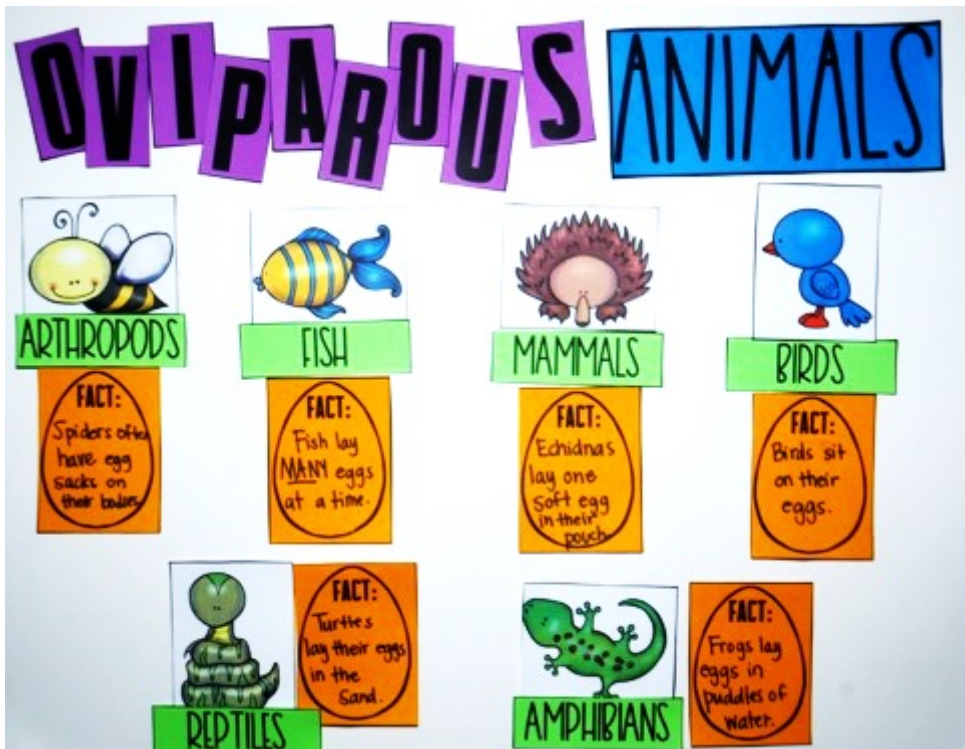 OVIPAROUS ANIMALS
ARTHROPODS
FACT:
Spiders often
have egg
sacks on
their bodies
FISH
FACT:
Fish lay
MANY eggs
at a time.
MAMMALS
FACT:
Echidnas
lay one
soft egg
in their
pouch
BIRDS
FACT:
Birds sit
on their
eggs.
REPTILES
FACT:
Turtles
lay their eggs
in the
Sand.
AMPHIBIANS
FACT:
Frogs lay
eggs in
puddles of
water.